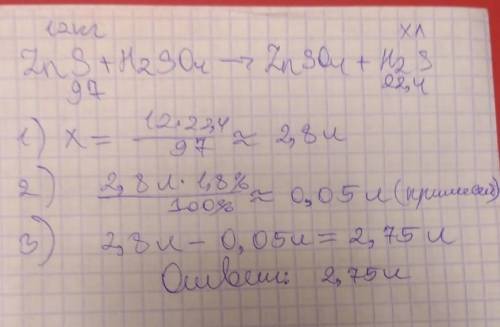 12кг хл
ZnS + H2SO4 → ZnSO4 + H2S
97 22,4
1) х = 12·22,4 / 97 ≈ 2,8л
2) 2,8л·1,8% / 100% ≈ 0,05л (примесей)
3) 2,8л - 0,05л = 2,75л
Ответ: 2,75л